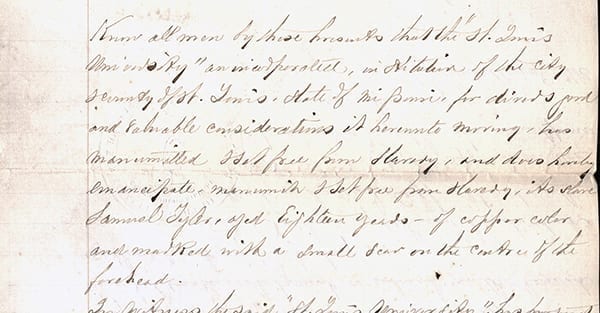 Know all men by these presents that the "St. Louis
University" an incorporated, institution of the city
& county of St. Louis, State of Missouri, for divers good
and valuable considerations it hereunto moving, has
manumitted & set free from Slavery, and does hereby
emancipate, manumit & set free from Slavery, its slave
Samuel Tyler, aged Eighteen years – of copper color
and marked with a small scar on the centre of the
forehead.
In witness the said "St. Louis University" has